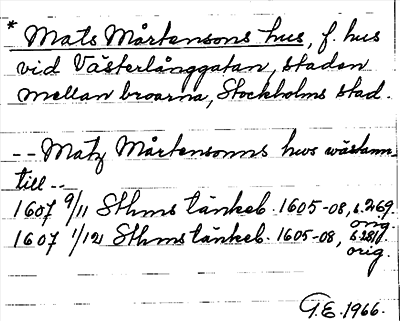 * Mats Mårtensons hus, f. hus
vid Västerlånggatan, staden
mellan broarna, Stockholms stad.
-- Matz Mårtensonns hws wästann-
till --
1607 9/11 Sthms tänkeb. 1605-08, s. 269.
orig.
1607 1/12 Sthms tänkeb. 1605-08, s. 281,
orig.
G.E. 1966.